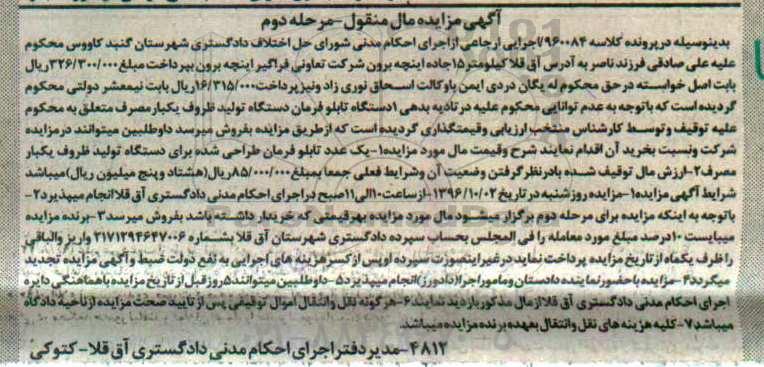 آگهی مزایده مال منقول-مرحله دوم
بدینوسیله درپرونده کلاسه ۹۶۰۰۸۴/اجرایی ارجاعی ازاجرای احکام مدنی شورای حل اختلاف دادگستری شهرستان گنبد کاووس محکوم
علیه علی صادقی فرزند ناصر به آدرس آق قلا کیلومتر۱۵جاده اینچه برون شرکت تعاونی فراگیر اینچه برون بپرداخت مبلغ۳۲۶/۳۰۰/۰۰۰ریال
بابت اصل خواسته درحق محکوم له یگان دردی ایمن باوکالت اسحاق نوری زاد ونیزپرداخت۱۶/۳۱۵/۰۰۰ریال بابت نیمعشر دولتی محکوم
گردیده است که باتوجه به عدم توانایی محکوم علیه در تادیه بدهی ۱دستگاه تابلو فرمان دستگاه تولید ظروف یکبارمصرف متعلق به محکوم
علیه توقیف وتوسط کارشناس منتخب ارزیابی وقیمتگذاری گردیده است که ازطریق مزایده بفروش میرسد داوطلبین میتوانند درمزایده
شرکت ونسبت بخرید آن اقدام نمایند شرح وقیمت مال مورد مزایده۱-یک عدد تابلو فرمان طراحی شده برای دستگاه تولید ظروف یکبار
مصرف۲-ارزش مال توقیف شده بادرنظرگرفتن وضعیت آن وشرایط فعلی جمعا بمبلغ۸۵/۰۰۰/۰۰۰ریال(هشتاد وپنج میلیون ریال)میباشد
شرایط آگهی مزایده۱-مزایده روزشنبه در تاریخ ۱۳۹۶/۱۰/۰۲-ازساعت۱۰الی۱۱صبح دراجرای احکام مدنی دادگستری آق قلاانجام میپذیرد۲-
باتوجه به اینکه مزایده برای مرحله دوم برگزار میشود مال مورد مزایده بهرقیمتی که خریدار داشته باشد بفروش میرسد۳-برنده مزایده
میبایست ۱۰درصد مبلغ مورد معامله را فی المجلس بحساب سپرده دادگستری شهرستان آق قلا بشماره ۲۱۷۱۲۹۴۶۴۷۰۰۶ واریز والباقی
را ظرف یکماه از تاریخ مزایده پرداخت نماید درغیراینصورت سپرده اوپس ازکسرهزینه های اجرایی به نفع دولت ضبط و آگهی مزایده تجدید
میگردد۴-مزایده باحضورنماینده دادستان ومامور اجرا(دادورز)انجام میپذیرد۵-داوطلبین میتوانند۵روز قبل از تاریخ مزایده باهماهنگی دایره
اجرای احکام مدنی دادگستری آق قلاازمال مذکور بازدید نمایند۶-هرگونه نقل وانتقال اموال توقیفی پس از تایید صحت مزایده ازناحیه دادگاه
میباشد۷-کلیه هزینه های نقل وانتقال بعهده برنده مزایده میباشد.
۴۸۱۲-مدیر دفتر اجرای احکام مدنی دادگستری آق قلا-کتوکی